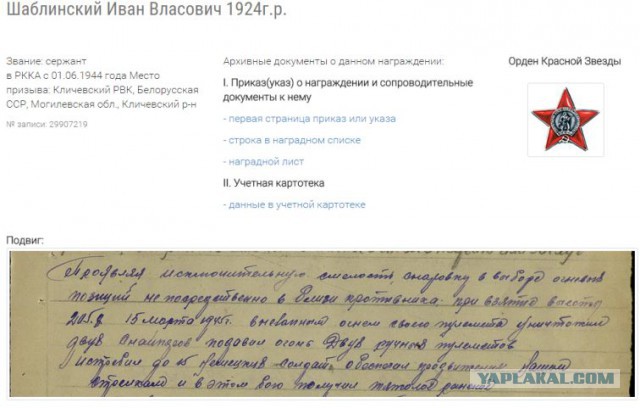 Шаблинский Иван Власович 1924г.р.
Звание: сержант
в РККА с 01.06.1944 года Место
призыва: Кличевский РВК, Белорусская
ССР, Могилевская обл., Кличевский р-н
№ записи: 29907219
Архивные документы о данном награждении:
I. Приказ(указ) о награждении и сопроводительные
документы к нему
- первая страница приказ или указа
- строка в наградном списке
- наградной лист
II. Учетная картотека
- данные в учетной картотеке
Орден Красной Звезды
Подвиг:
Проявляя исключительную смелость в выборе
позиций непосредственно в близи противника. При взятии высоты
205.8 15 марта 1945г. огнем своего пулемета уничтожил
двух снайперов подавил огонь двух ручных пулеметов
истребил до 15 немецких солдат, обеспечил продвижение
и в этом бою получил
YAPLAKAL.COM